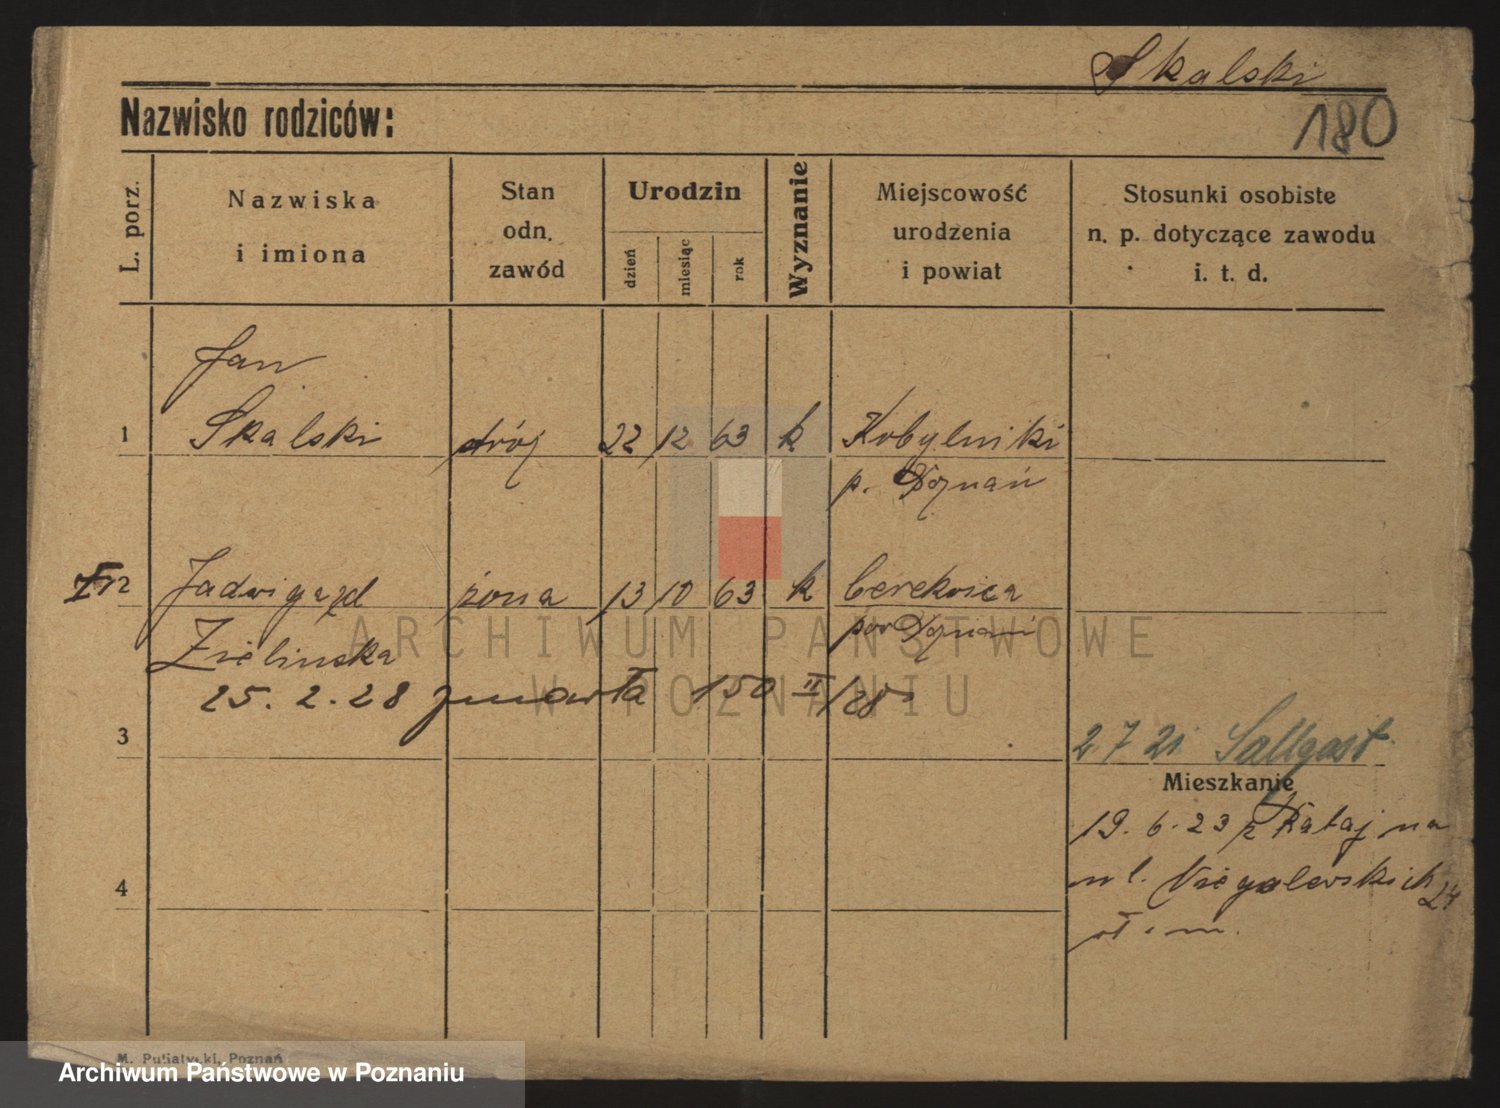 Skalski
Nazwisko rodziców:
180
L. porz.
Nazwiska
i imiona
Stan
odn.
zawód
Urodzin
dzień
miesiąc
rok
Wyznanie
Miejscowość
urodzenia
i powiat
Stosunki osobiste
n. p. dotyczące zawodu
i. t. d.
Jan
1 Skalski stróż 22 12 63 k Kobylniki
p. Poznań
2 Jadwiga zd żona 13 10 63 k Cerekwica
Zielinska pow Poznań
25. 2. 28 zmarła 150 II/28
3
2. 7 21 Sallgast
Mieszkanie
19. 6. 23 z Rataj na
4
24
M. Putiatycki, Poznań
ARCHIWUM PAŃSTWOWE
W POZNANIU
Archiwum Państwowe w Poznaniu